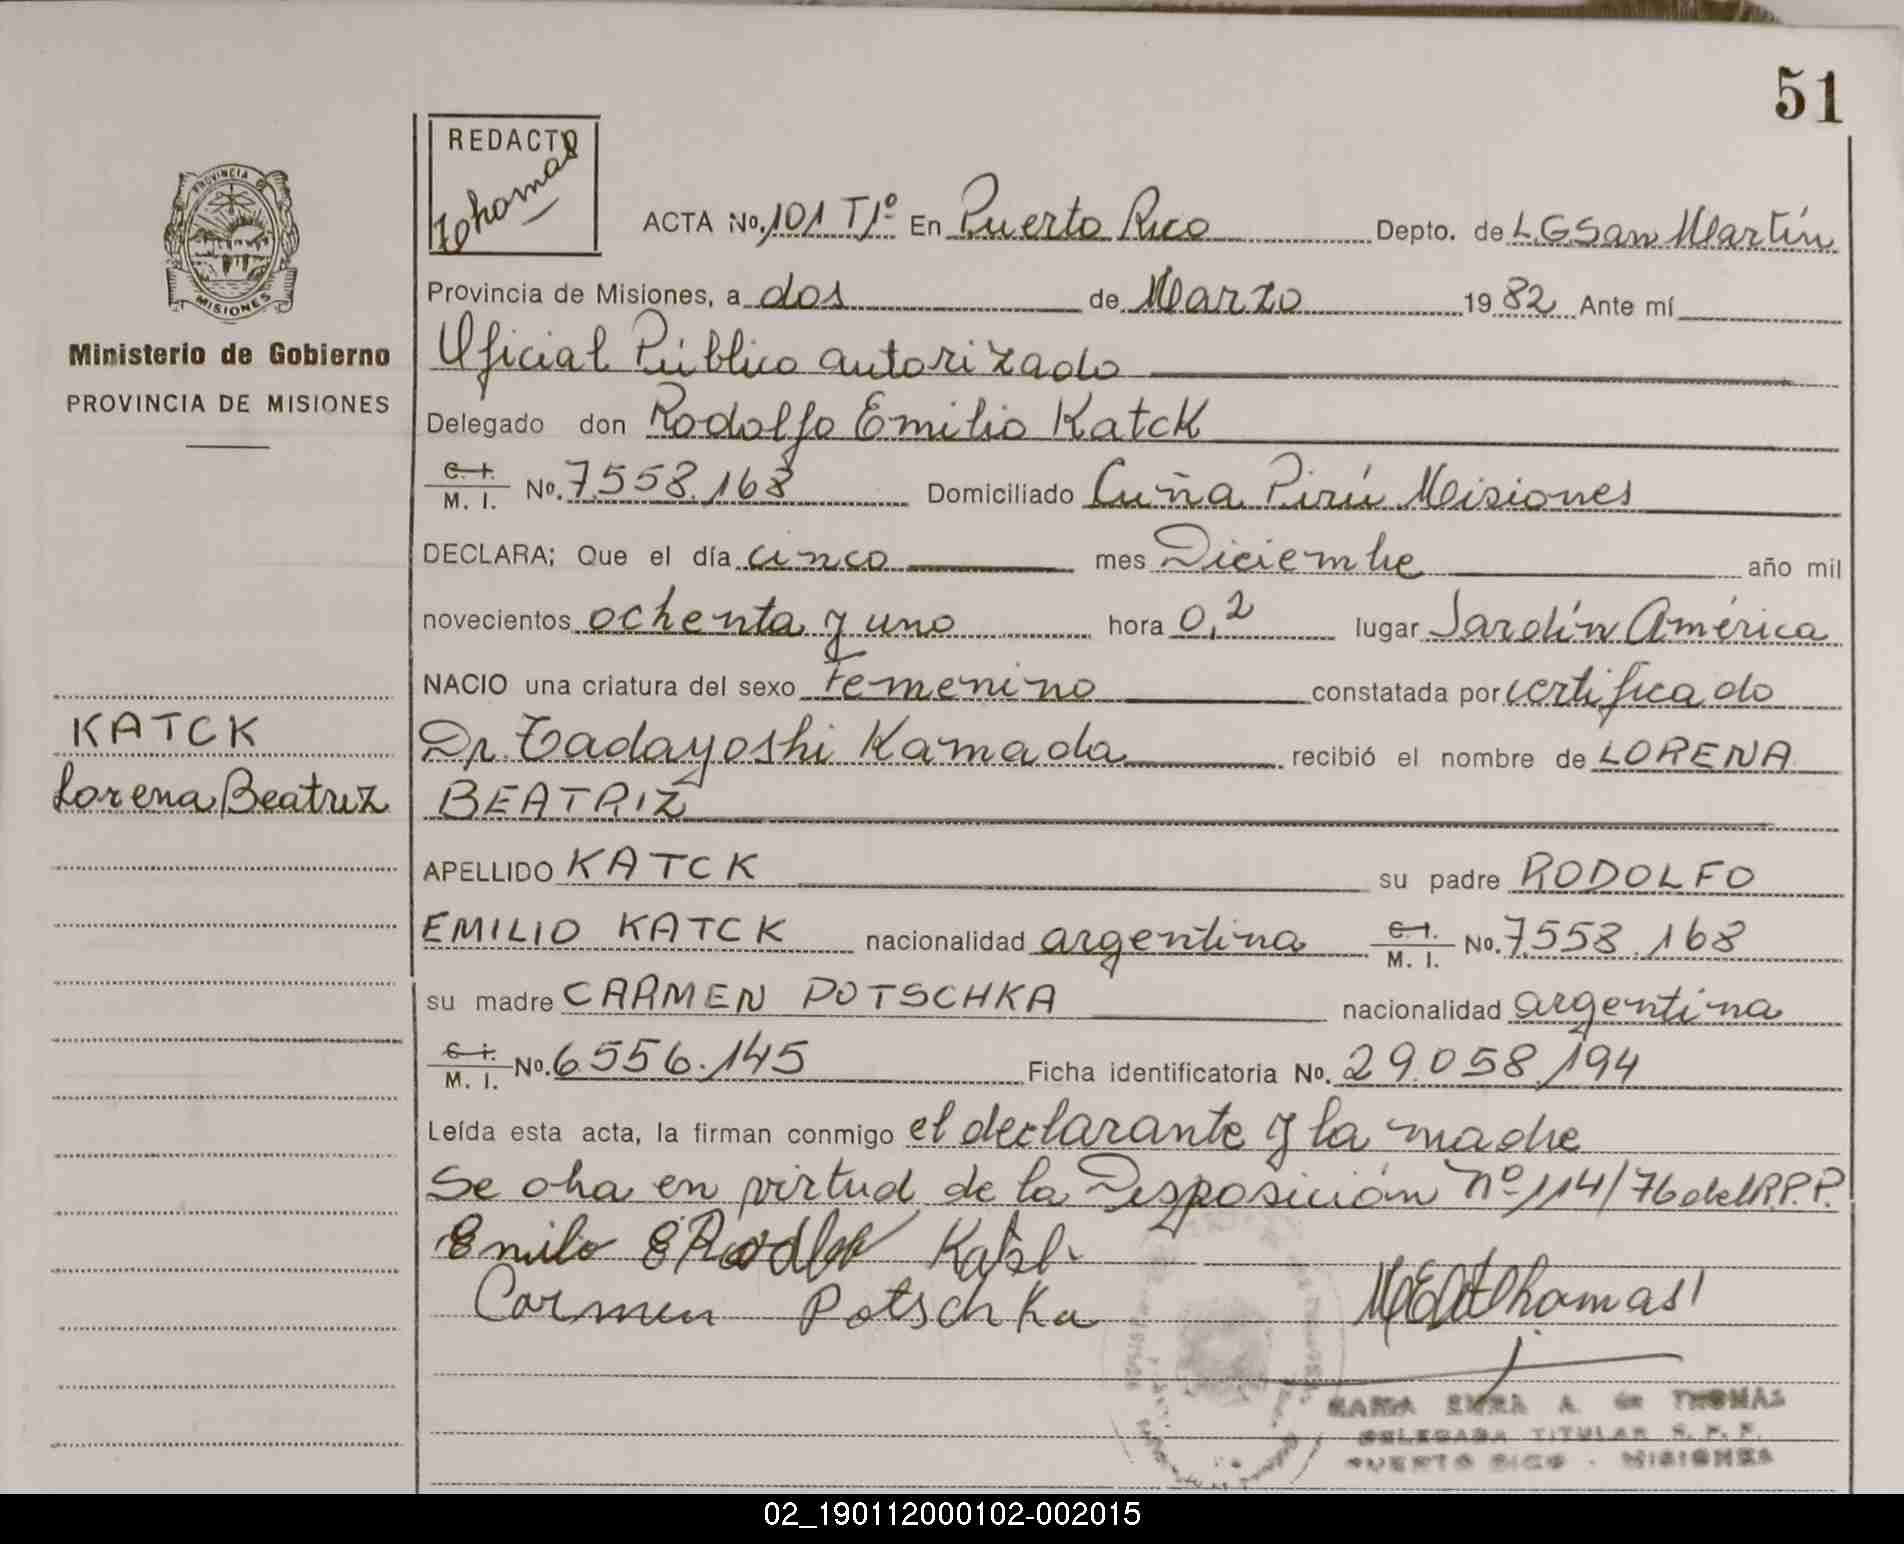 51
REDACTO
Thomas
PROVINCIA DE
MISIONES
Ministerio de Gobierno
PROVINCIA DE MISIONES
KATCK
Lorena Beatriz
ACTA No. 101 T1º En Puerto Rico Depto. de L.G.San Martín
Provincia de Misiones, a dos de Marzo 1982 Ante mí
Oficial Público autorizado
Delegado don Rodolfo Emilio Katck
C. I. M. I. No. 7.558.168 Domiciliado Cuña Pirú Misiones
DECLARA; Que el día cinco mes Diciembre año mil
novecientos ochenta y uno hora 0,2 lugar Jardín América
NACIO una criatura del sexo Femenino constatada por certificado
Dr. Tadayoshi Kamada recibió el nombre de LORENA
BEATRIZ
APELLIDO KATCK su padre RODOLFO
EMILIO KATCK nacionalidad argentina C. I. M. I. No. 7.558.168
su madre CARMEN POTSCHKA nacionalidad argentina
C. I. M. I. No. 6.556.145 Ficha identificatoria No. 29.058.194
Leída esta acta, la firman conmigo el declarante y la madre
Se oha en virtud de la Disposición Nº 114/76 del R.P.P.
Emilo Rodlof Katck
Carmen Potschka
Thomas
MARIA ELVRA A. de THOMAS
DELEGADA TITULAR R. P. P.
PUERTO RICO - MISIONES
02_190112000102-002015